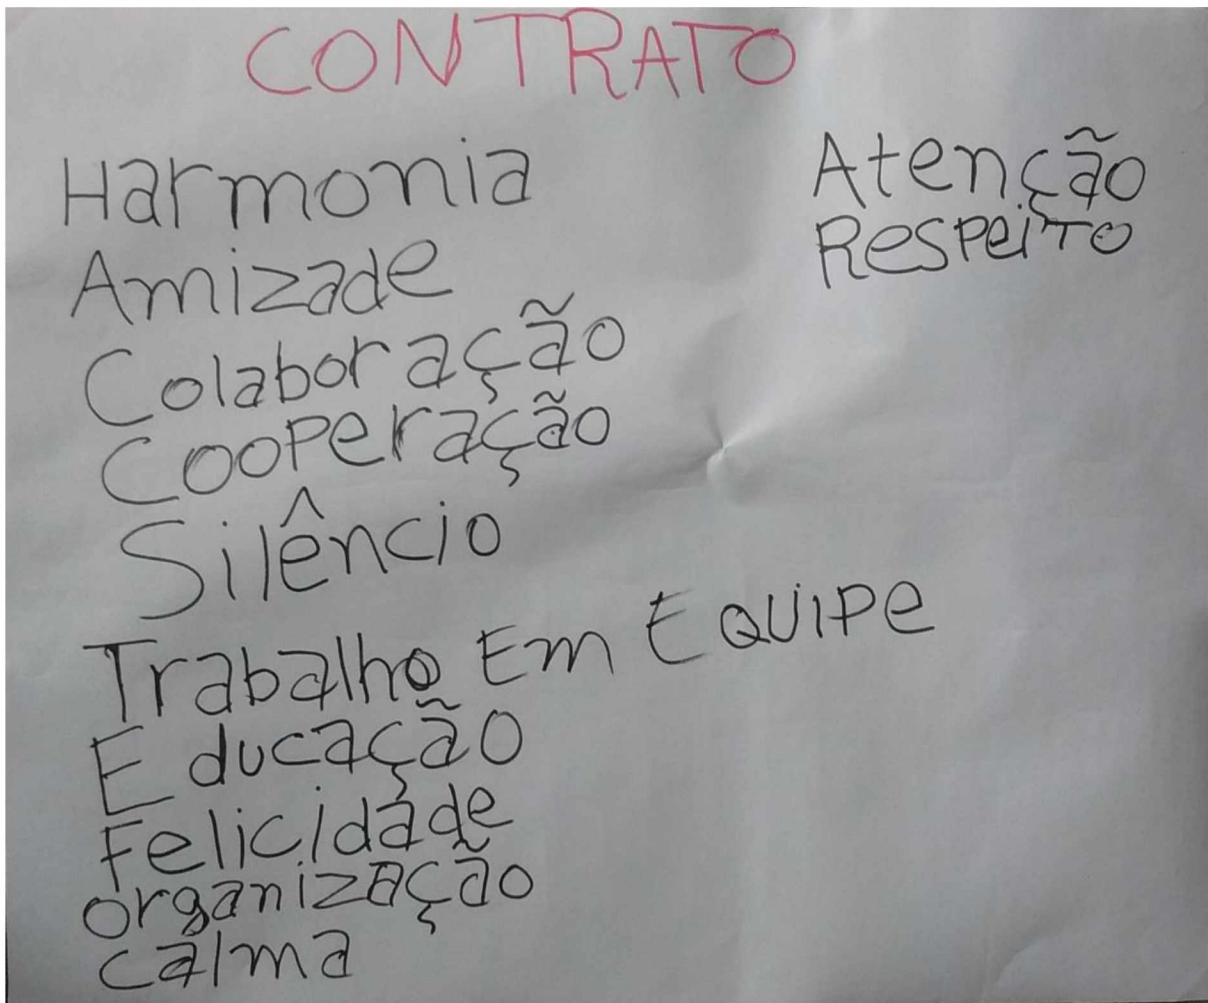 CONTRATO
Harmonia
Amizade
Colaboração
Cooperação
Silêncio
Trabalho Em Equipe
Educação
Felicidade
organização
calma
Atenção
Respeito